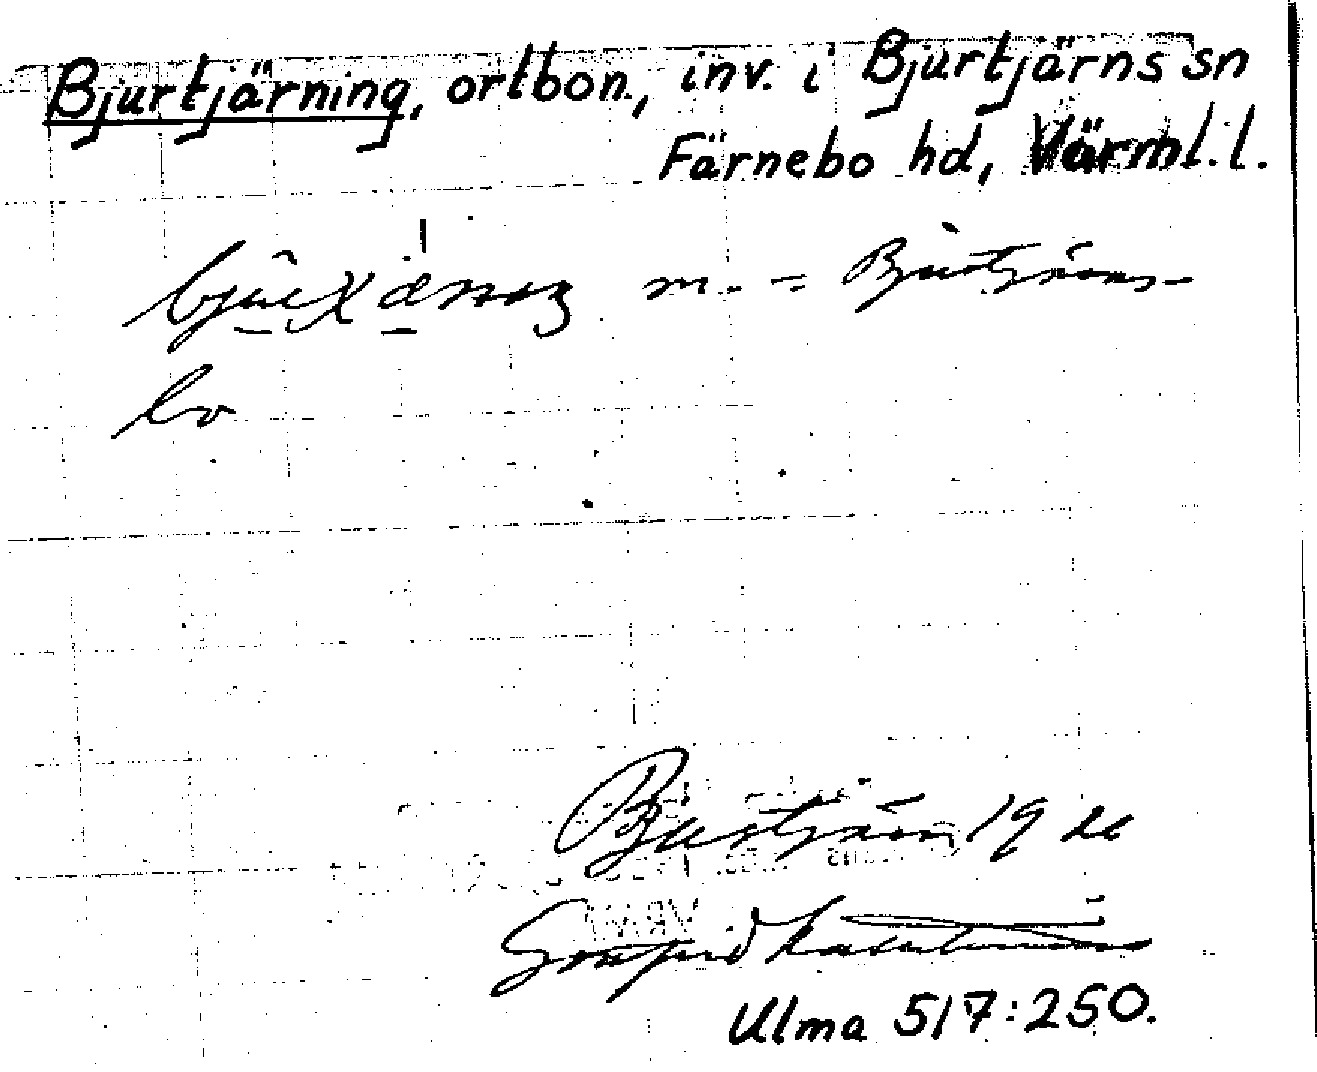 Bjurtjärning, ortbon., inv. i Bjurtjärns sn
Färnebo hd, Värml. l.
m. = Bjurtjärns-
bo
Bjurtjärn 19
Ulma 517:250.